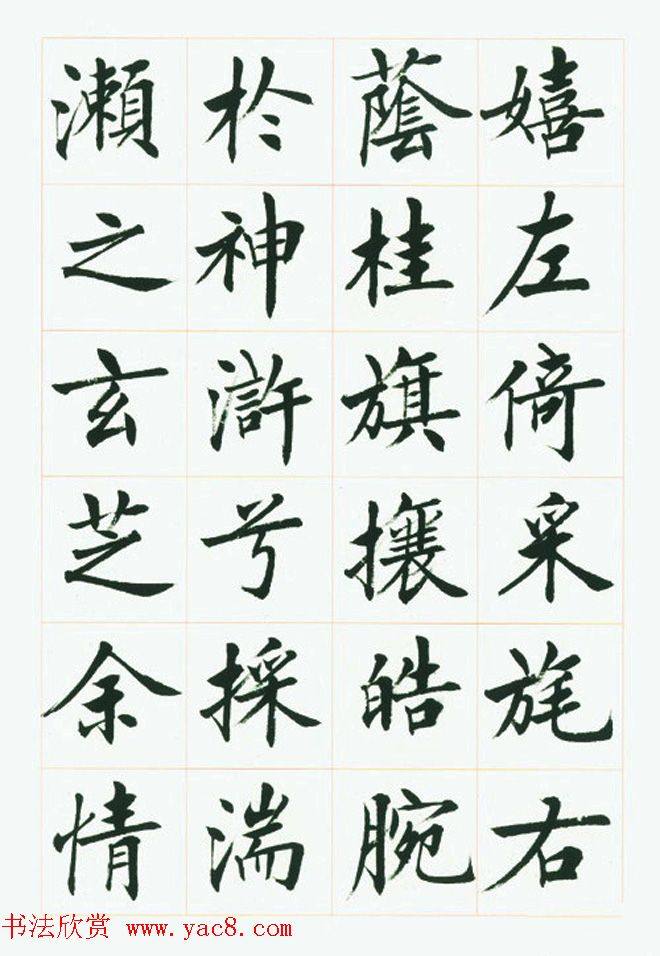 嬉左倚采旄右
蔭桂旗攘皓腕
於神滸兮採湍
瀬之玄芝余情
书法欣赏 www.yac8.com